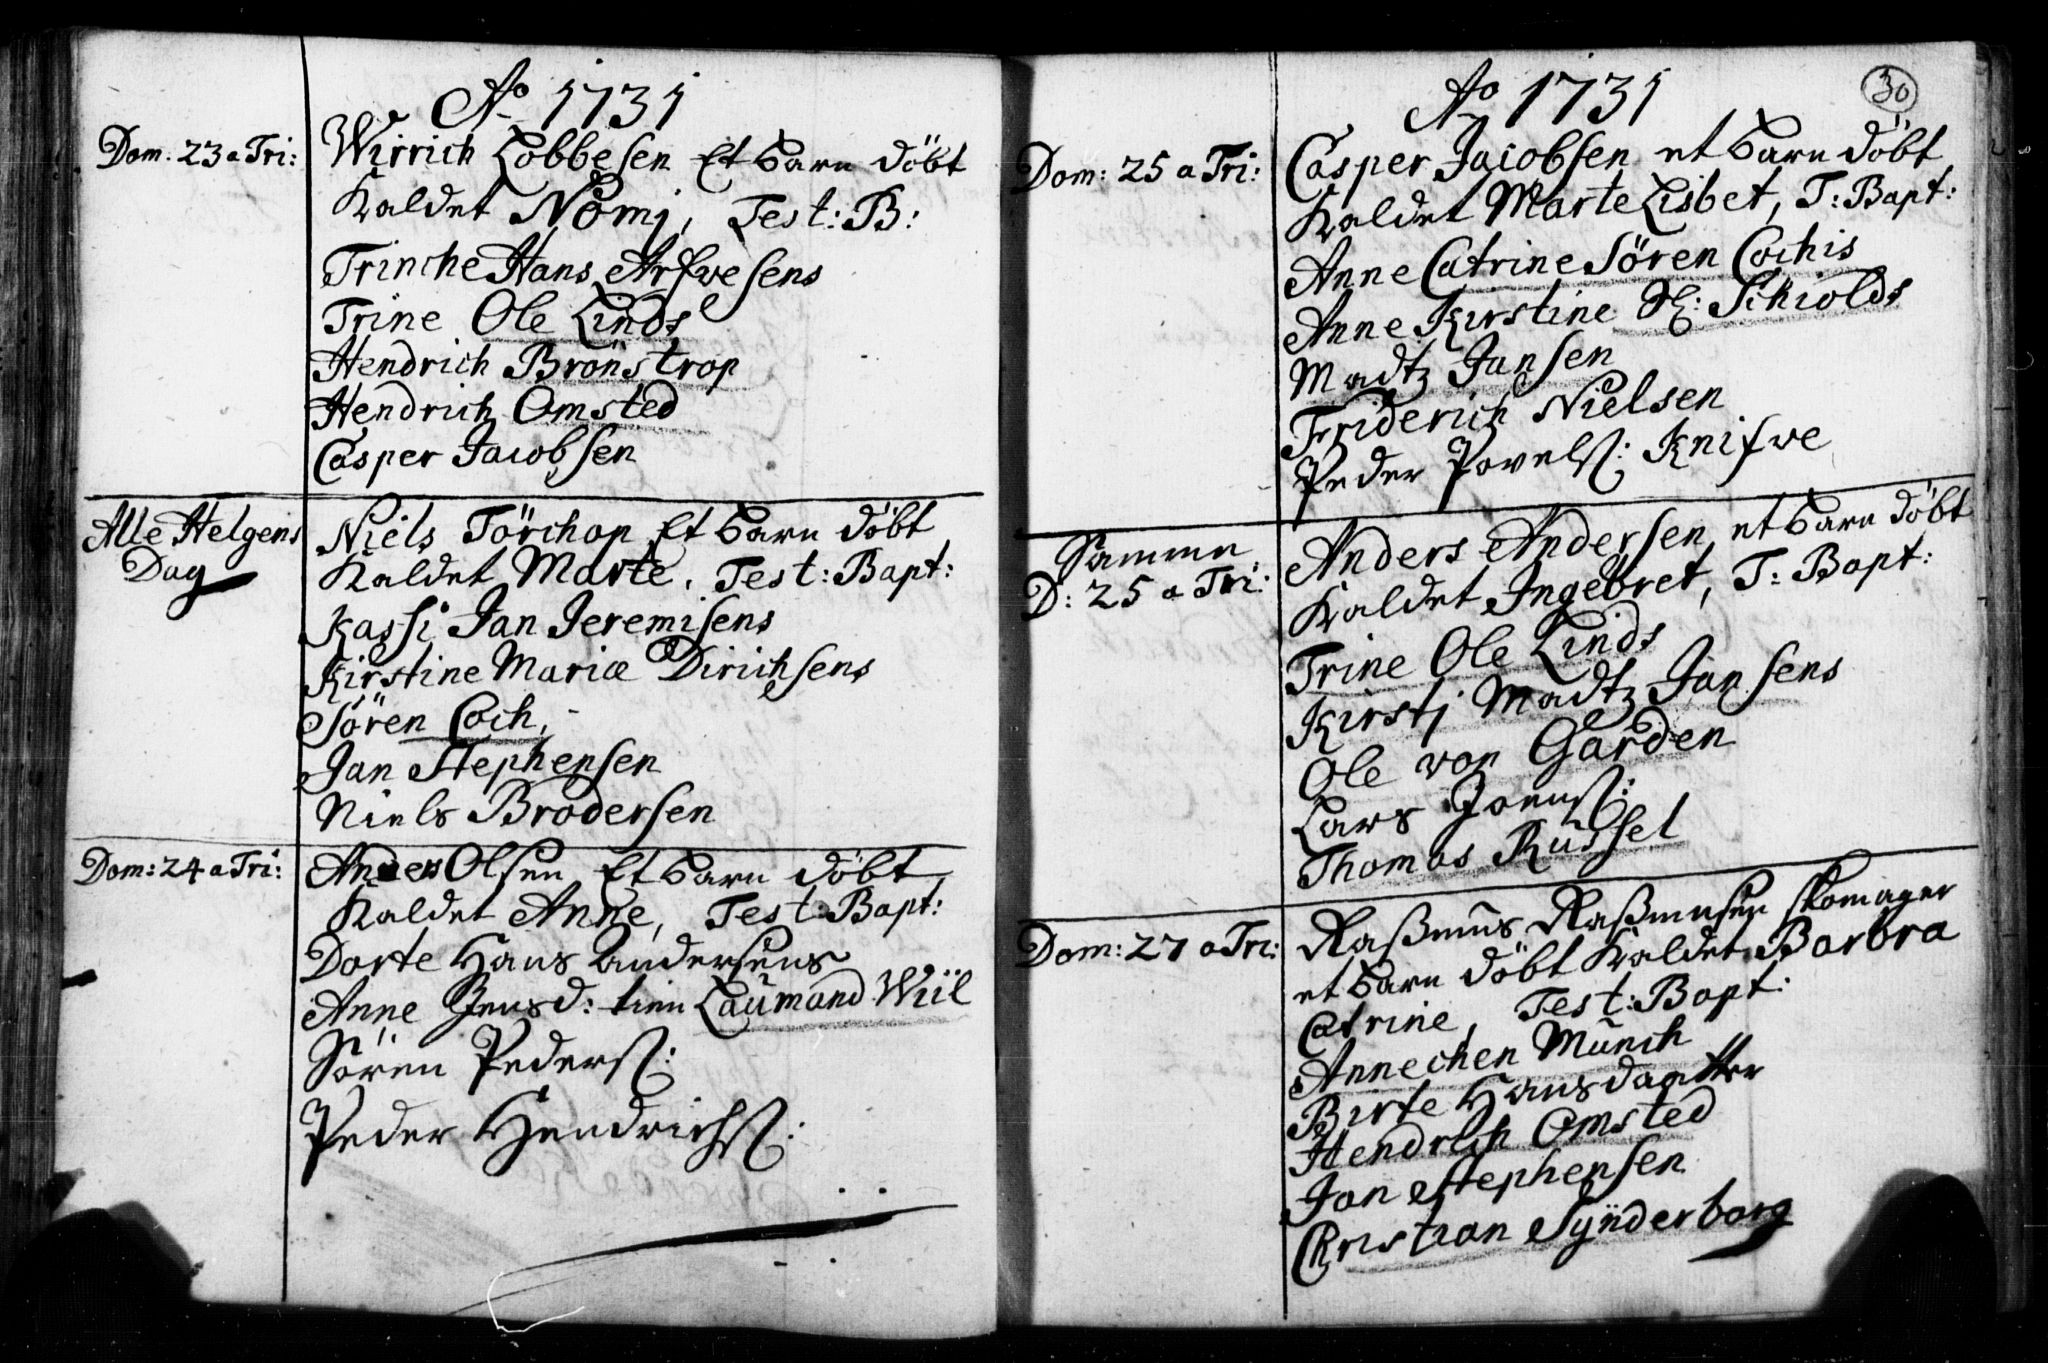 Ao 1731
Dom: 23 a Tri: Wirrich Lobbesen Et barn döbt
Kaldet Nömj, Test: B:
Trinche Hans Arfwesens
Trine Ole Linds
Hendrich Brönstrop
Hendrich Omsted
Casper Jacobsen
Alle Helgens Niels Törchop Et barn döbt
Dag Kaldet Marte, Test: Bapt:
Kassi Jan Jeremisens
Kirstine Mariæ Dirichsens
Sören Coch,
Jan Stephensen
Niels Brodersen
Dom: 24 a Tri: Anders Olsen Et barn döbt
Kaldet Anne, Test: Bapt:
Dorte Hans Andersens
Anne Jensd: tien Laumand Wiil
Sören Peders:
Peder Hendrichs:
30
Ao 1731
Dom: 25 a Tri: Casper Jacobsen et barn döbt
Kaldet Marte Lisbet, T: Bapt:
Anne Catrine Sören Cochis
Anne Kirstine Sl: Schiolds
Madtz Jansen
Friderich Nielsen
Peder Povels: Knifwe
Samme Anders Andersen et barn döbt
D: 25 a Tri: Kaldet Ingebret, T: Bapt:
Trine Ole Linds
Kirstj Madtz Jansens
Ole von Garden
Lars Joens:
Thomas Russel
Dom: 27 a Tri: Raßmus Raßmusen skomager
et barn döbt Kaldet Barbra
Catrine, Test: Bapt:
Annechen Munch
Birte Hansdaatter
Hendrich Omsted
Jan Stephensen
Christian Synderborg